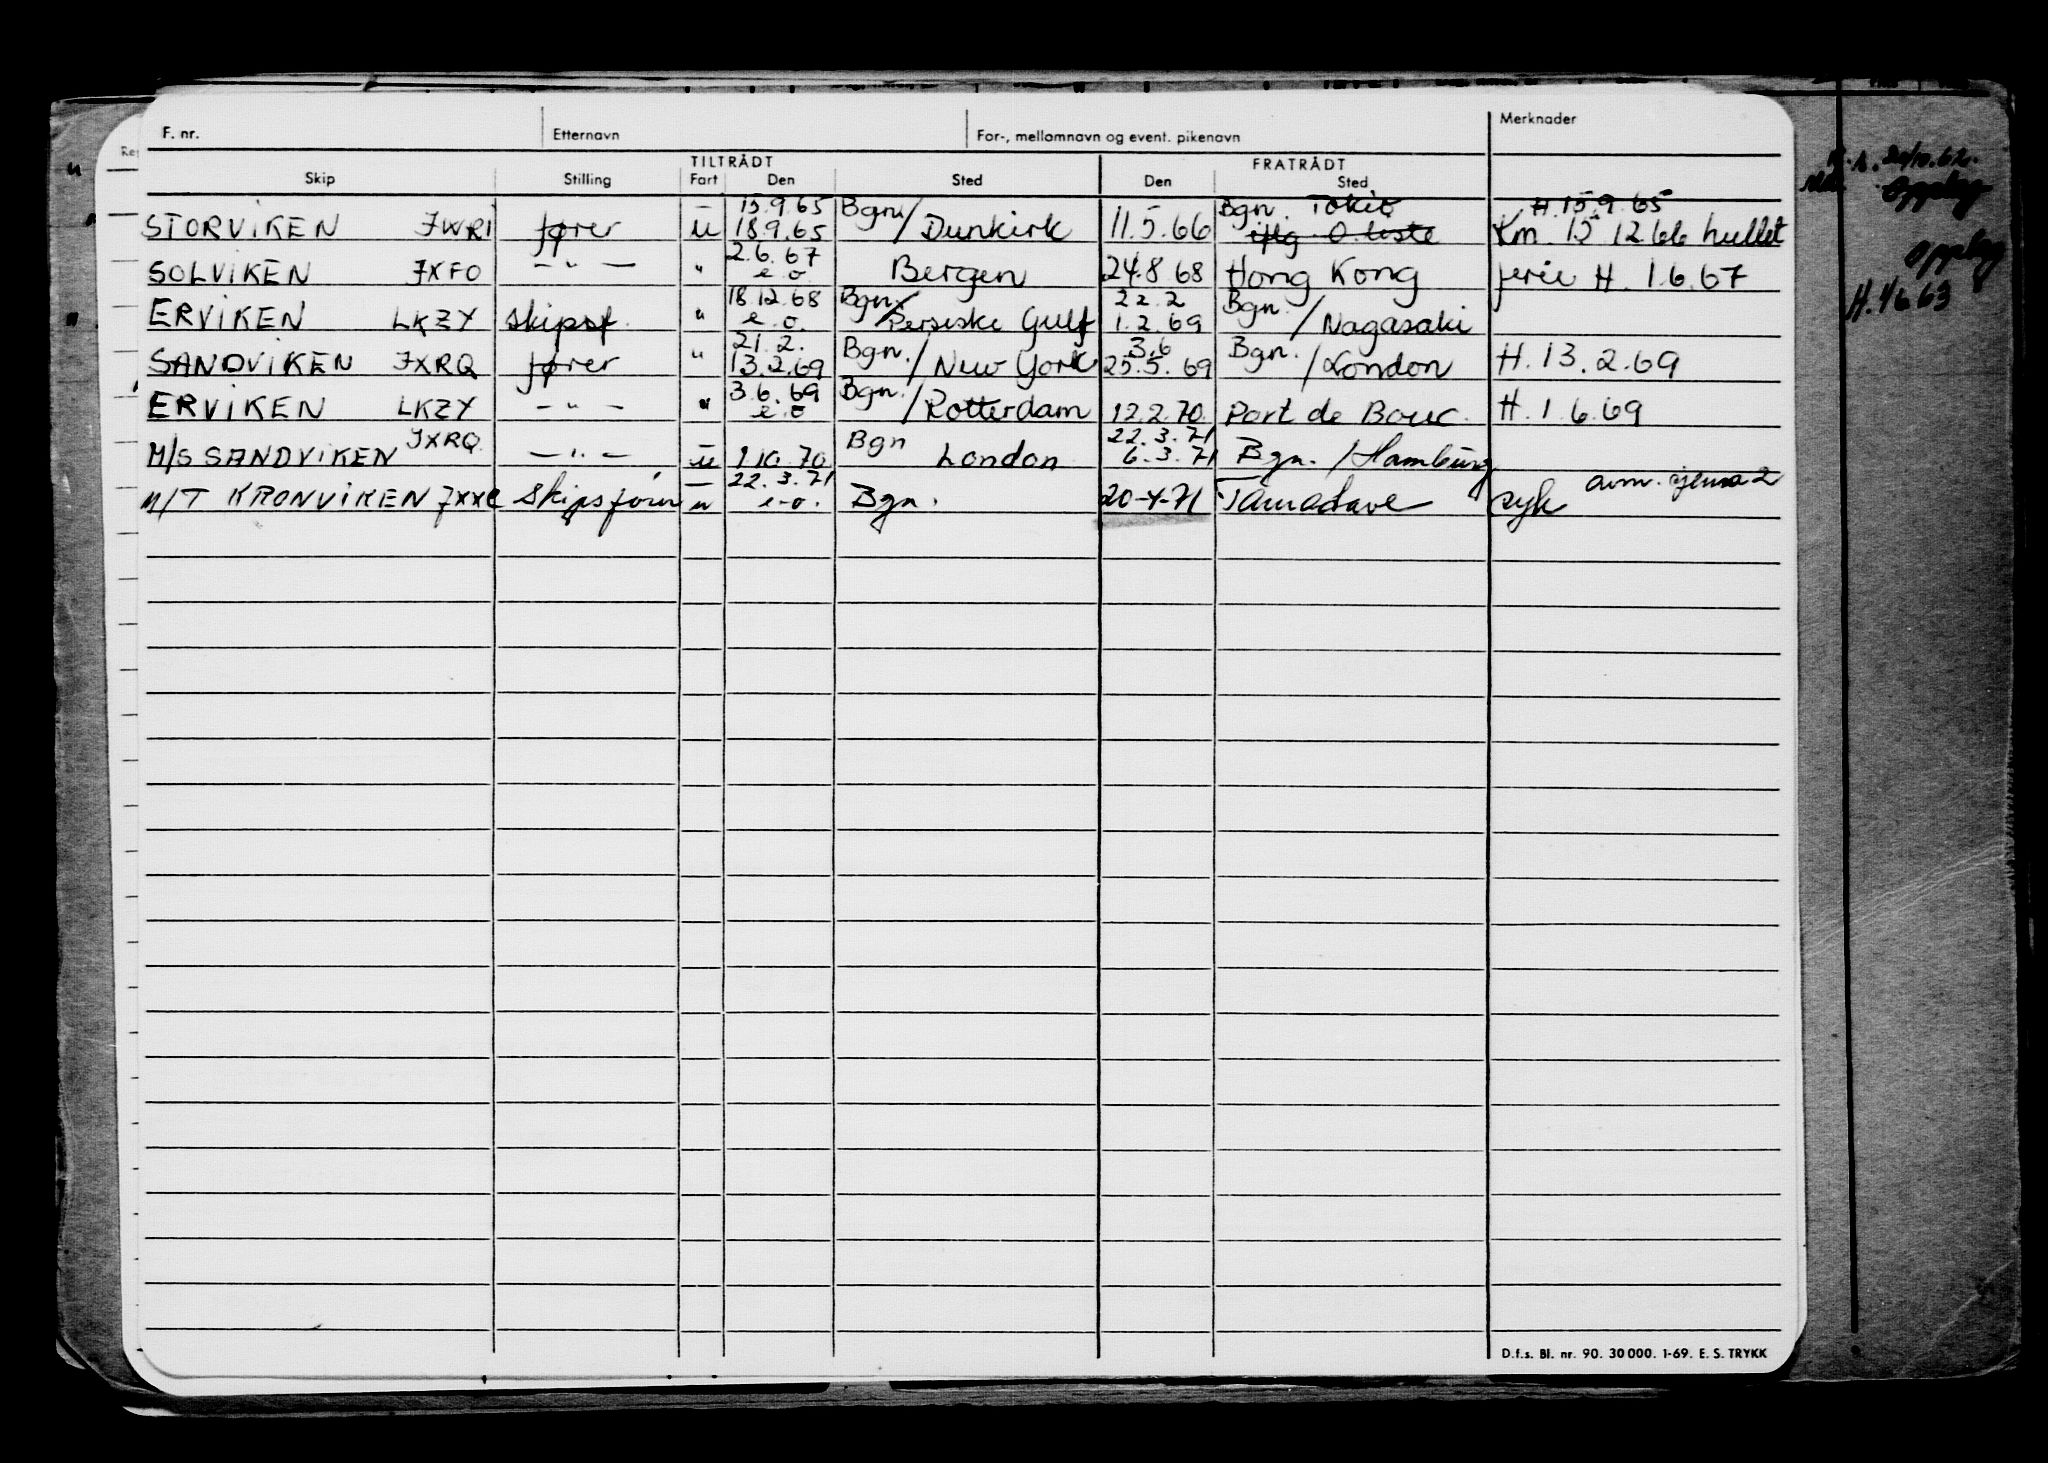 F. nr. Etternavn For-, mellomnavn og event. pikenavn Merknader
TILTRÅDT FRATRÅDT
Skip Stilling Fart Den Sted Den Sted
15.9.65 Bgn. Bgn. Tokio H. 15.9.65
STORVIKEN JWRI fører u 18.9.65 / Dunkirk 11.5.66 iflg. O. liste Km. 15 12.66 hullet
2.6.67
SOLVIKEN JXFO — " — " e.o Bergen 24.8.68 Hong Kong ferie H. 1.6.67
18.12.68 Bgn. 22.2 Bgn.
ERVIKEN LKZY skipsf. " e.o. / Persiske Gulf 1.2.69 / Nagasaki
21.2. Bgn. 3.6 Bgn.
SANDVIKEN JXRQ fører " 13.2.69 / New York 25.5.69 / London H. 13.2.69
3.6.69 Bgn.
ERVIKEN LKZY — " — " e.o / Rotterdam 12.2.70. Port de Bouc. H. 1.6.69
JXRQ Bgn 22.3.71
M/S SANDVIKEN — " — u 1.10.70 London 6.3.71 Bgn. / Hamburg
22.3.71
M/T KRONVIKEN Skipsfører u e.o. Bgn. 20-4-71 syk
D.f.s. Bl. nr. 90. 30 000. 1-69. E. S. TRYKK
Opplag
Opplag
H. 4.6.63